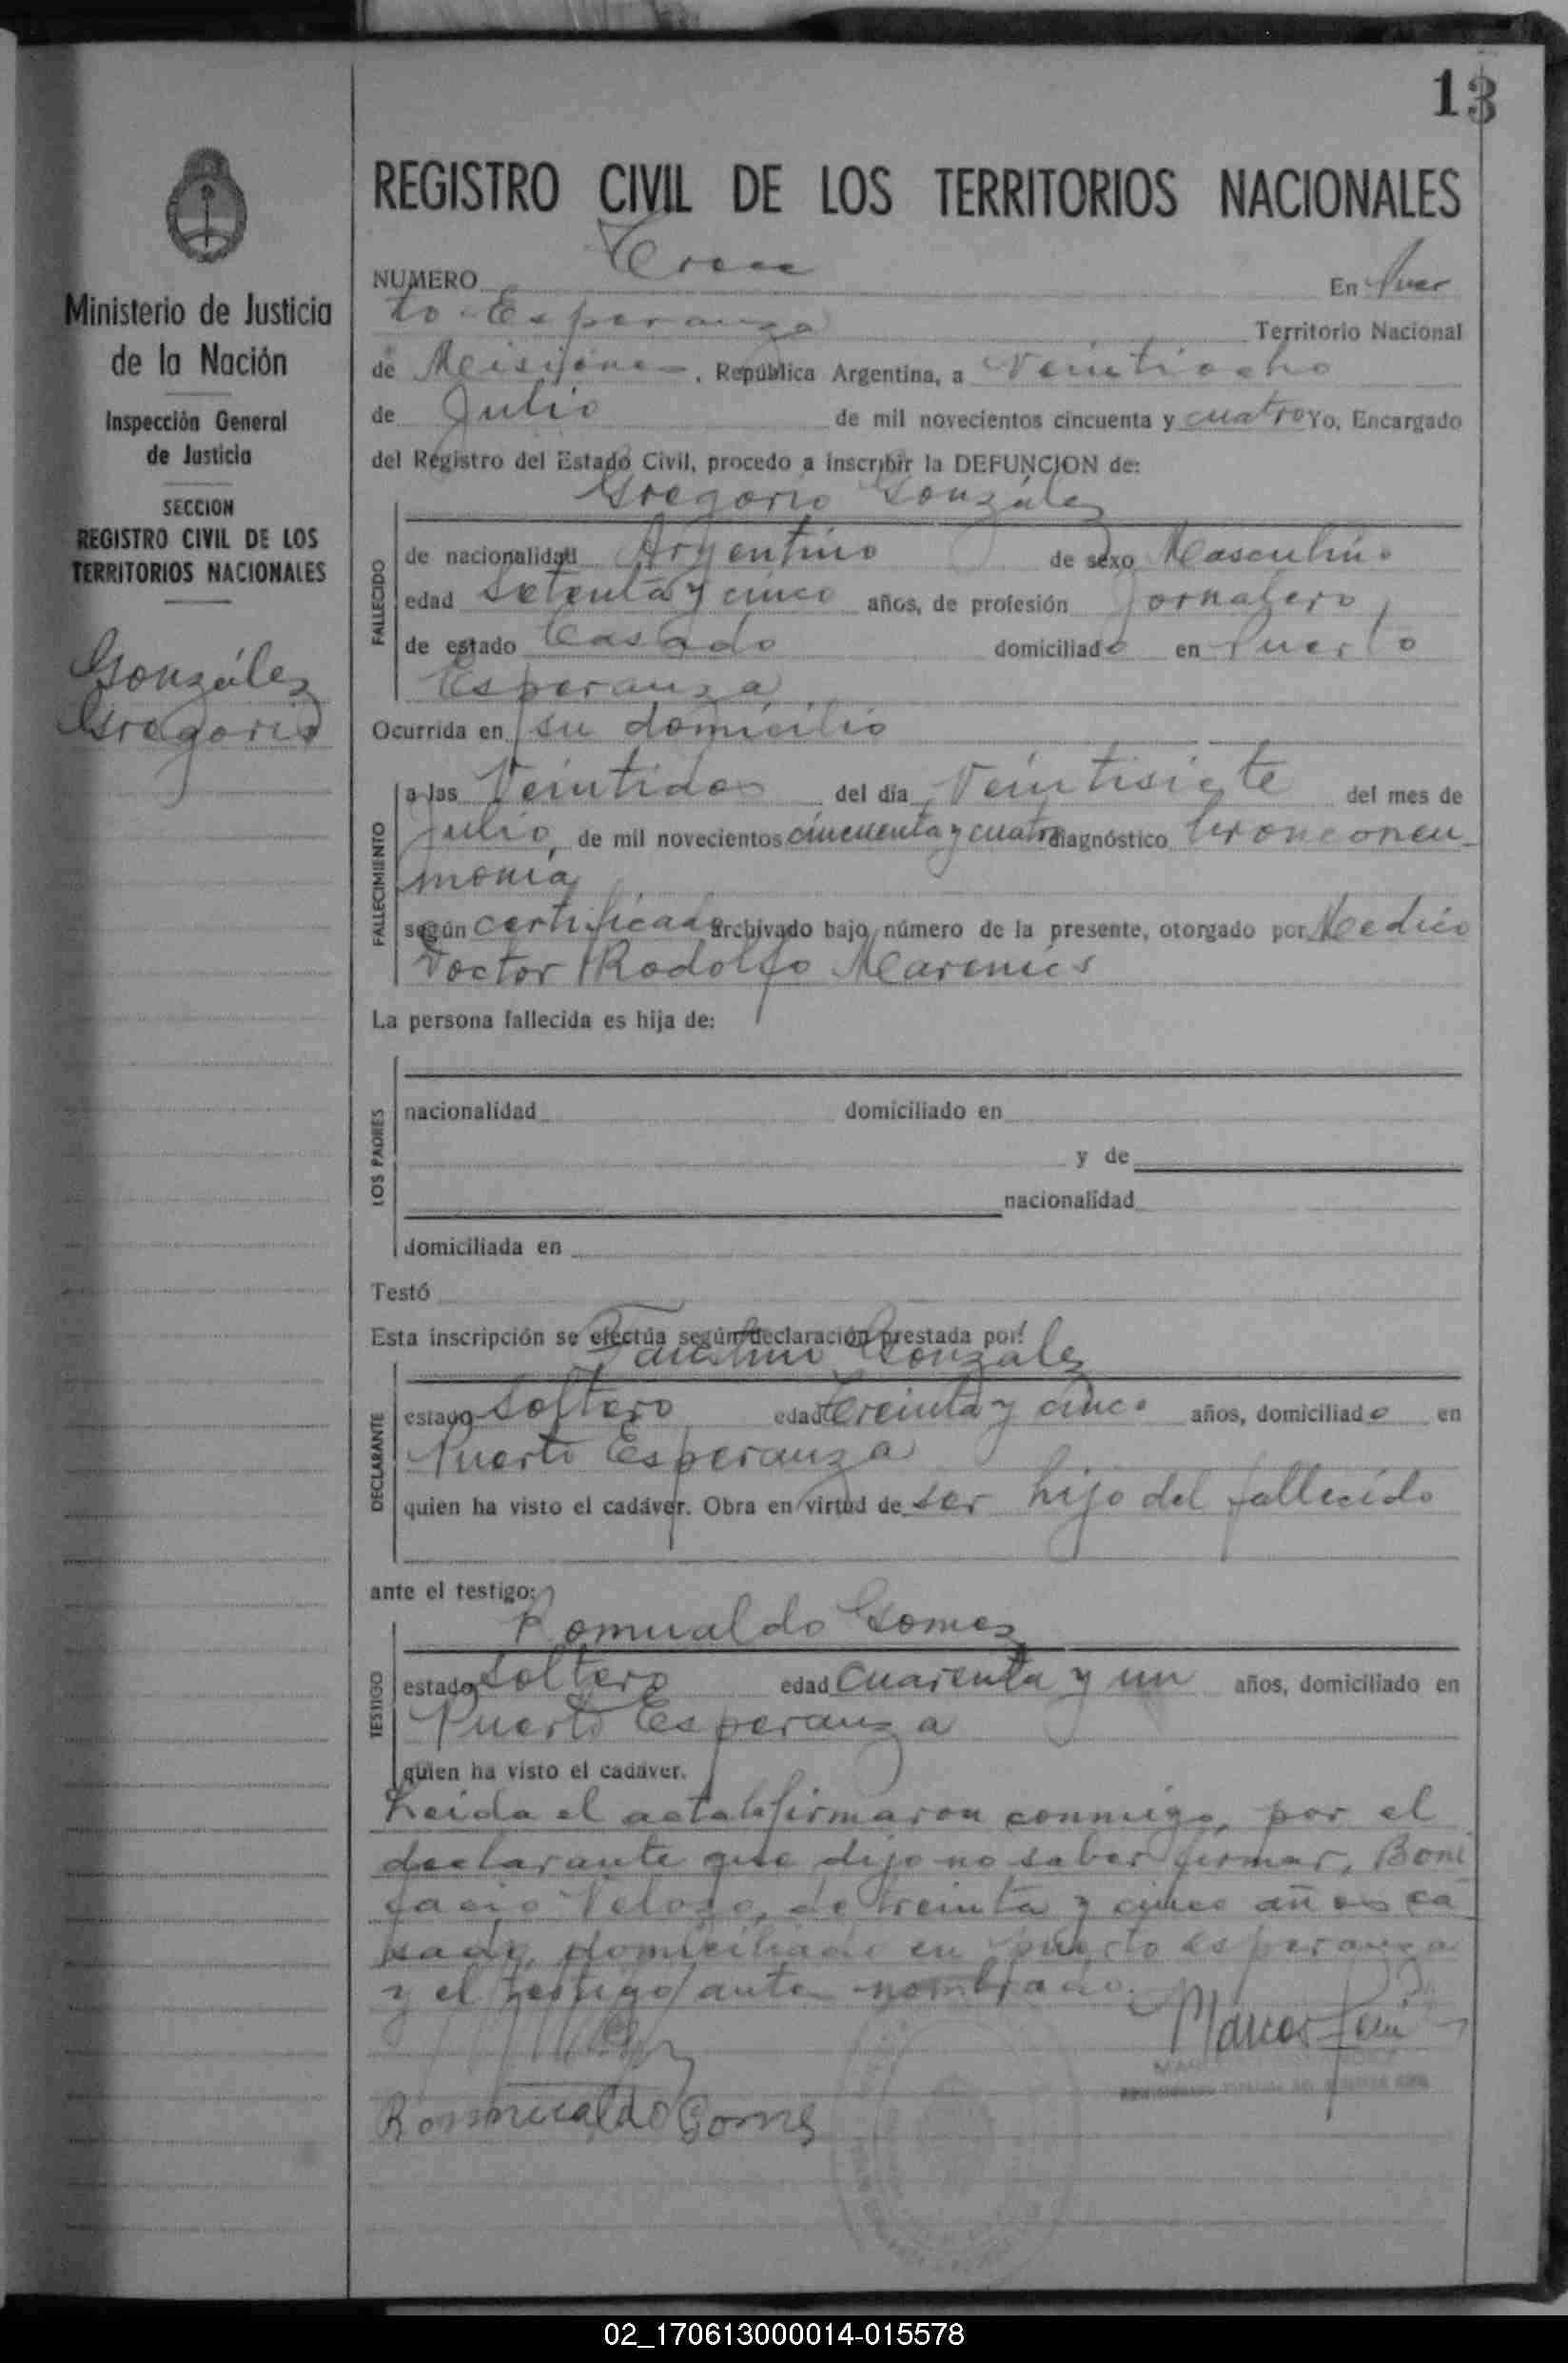 13
REGISTRO CIVIL DE LOS TERRITORIOS NACIONALES
Ministerio de Justicia
de la Nación
Inspección General
de Justicia
SECCION
REGISTRO CIVIL DE LOS
TERRITORIOS NACIONALES
González
Gregorio
NUMERO Trece En Puer
to Esperanza Territorio Nacional
de Misiones, República Argentina, a Veintiocho
de Julio de mil novecientos cincuenta y cuatro Yo, Encargado
del Registro del Estado Civil, procedo a inscribir la DEFUNCION de:
Gregorio González
FALLECIDO
de nacionalidad Argentino de sexo Masculino
edad Setenta y cinco años, de profesión Jornalero,
de estado Casado domiciliado en Puerto
Esperanza
Ocurrida en su domicilio
FALLECIMIENTO
a las Veintidos del día Veintisiete del mes de
Julio, de mil novecientos cincuenta y cuatro diagnóstico bronconeu-
monia
según certificado archivado bajo número de la presente, otorgado por Medico
Doctor Rodolfo Marenics
La persona fallecida es hija de:
LOS PADRES
nacionalidad domiciliado en
y de
nacionalidad
domiciliada en
Testó
Esta inscripción se efectúa según declaración prestada por:
Faustino González
DECLARANTE
estado Soltero edad treinta y cinco años, domiciliado en
Puerto Esperanza
quien ha visto el cadáver. Obra en virtud de ser hijo del fallecido
ante el testigo:
Romualdo Gomez
TESTIGO
estado Soltero edad Cuarenta y un años, domiciliado en
Puerto Esperanza
quien ha visto el cadáver.
Leida el acta la firmaron conmigo, por el
declarante que dijo no saber firmar, Boni
facio Velozo, de treinta y cinco años ca
sado, domiciliado en puerto esperanza
y el testigo ante nombrado.
Marcos
Romualdo Gomes
02_170613000014-015578